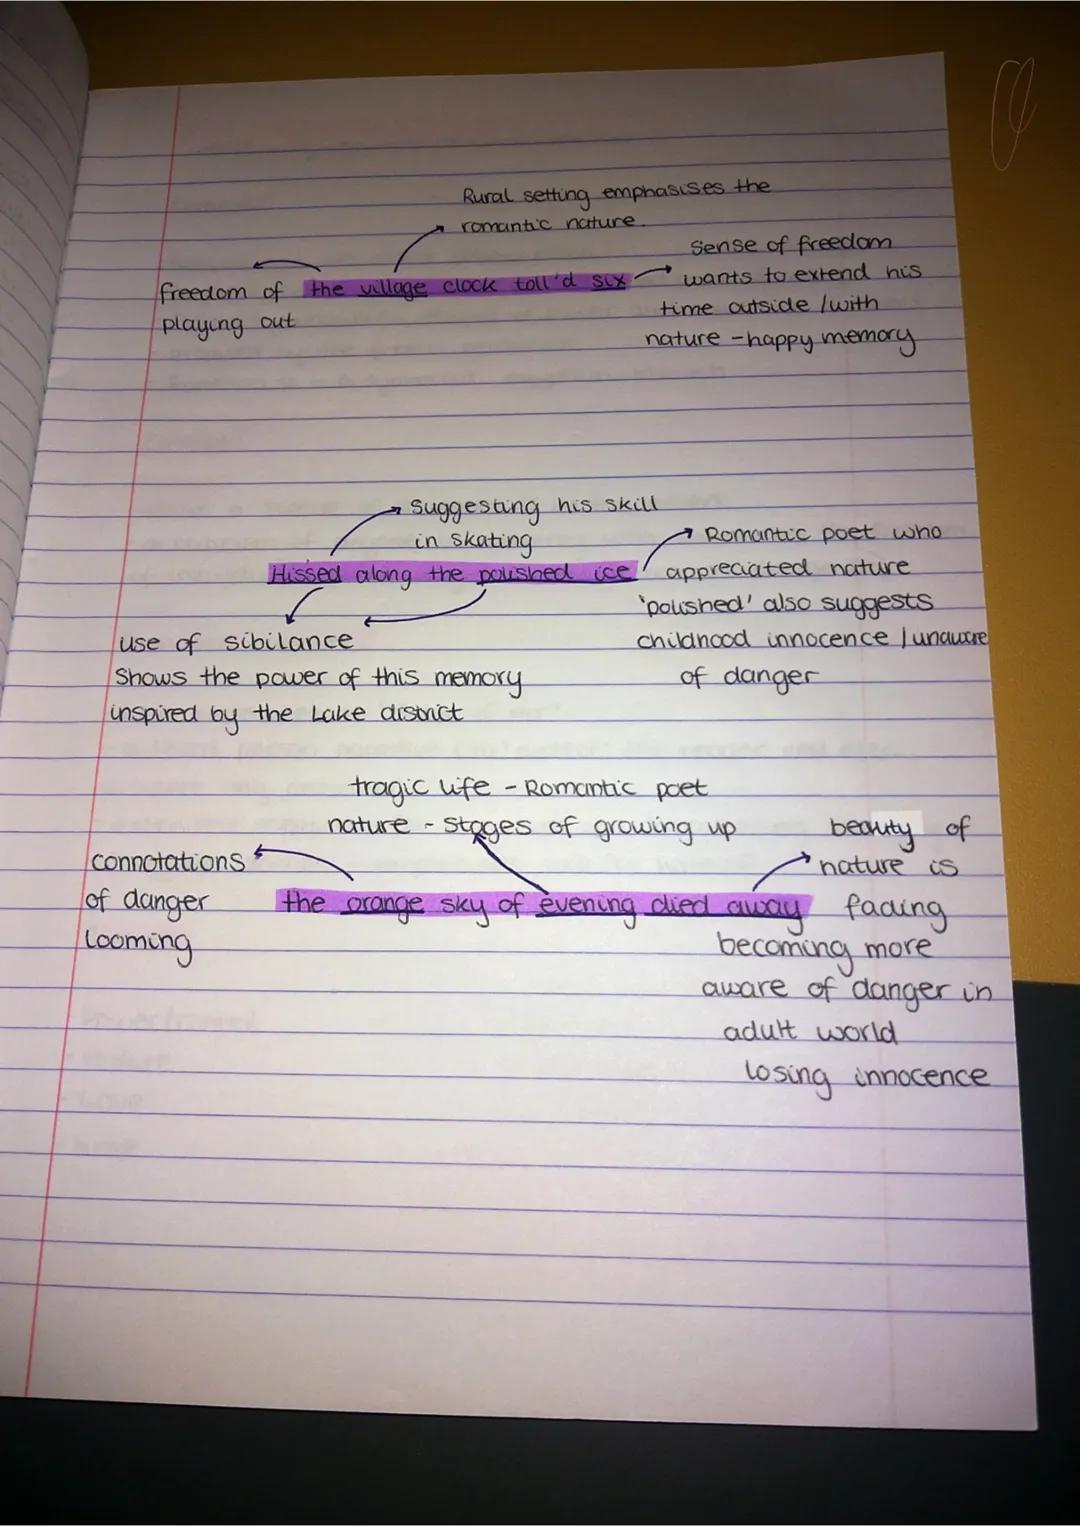 Rural setting emphasises the
romantic nature.
freedom of
playing out
the village clock toll'd six
Sense of freedom
wants to extend his
time outside / with
nature - happy memory
Suggesting his skill
in skating
Hissed along the polished ice
Romantic poet who
appreciated nature
'polished' also suggests
childhood innocence / unaware
of danger
use of sibilance
Shows the power of this memory
inspired by the Lake district
tragic life - Romantic poet
nature - Stages of growing up
connotations
of danger
looming
the orange sky of evening died away
beauty of
nature is
fading
becoming more
aware of danger in
adult world
losing innocence